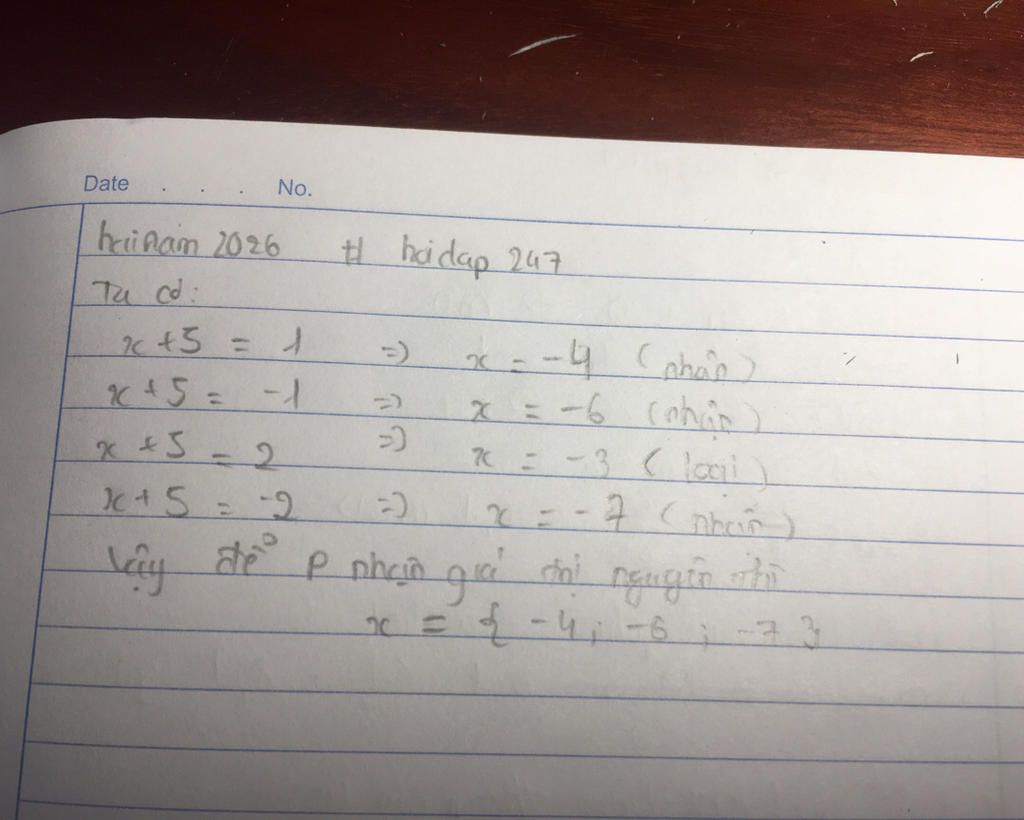 Date . . . No.
hainam 2026 # hoidap 247
Ta có:
x + 5 = 1 => x = -4 (nhận)
x + 5 = -1 => x = -6 (nhận)
x + 5 = 2 => x = -3 (loại)
x + 5 = -2 => x = -7 (nhận)
Vậy để P nhận giá trị nguyên thì
x = { -4; -6; -7 }